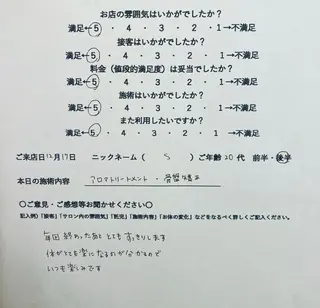 お店の雰囲気はいかがでしたか？
満足←５ ・ 4 ・ 3 ・ 2 ・ 1→不満足
接客はいかがでしたか？
満足←５ ・ 4 ・ 3 ・ 2 ・ 1→不満足
料金（値段的満足度）は妥当でしたか？
満足←５ ・ 4 ・ 3 ・ 2 ・ 1→不満足
施術はいかがでしたか？
満足←５ ・ 4 ・ 3 ・ 2 ・ 1→不満足
また利用したいですか？
満足←５ ・ 4 ・ 3 ・ 2 ・ 1→不満足
ご来店日12月17日 ニックネーム（ S ）ご年齢20代 前半・後半
本日の施術内容 アロマトリートメント ・ 骨盤矯正
〇ご意見・ご感想等お聞かせください。
記入例）「接客」「サロン内の雰囲気」「託児」「施術内容」「お体の変化」などをなるべく詳しくご記入ください。
毎回 終わったあと とても すっきりします
体がとても楽になるのが分かるので
いつも楽しみです